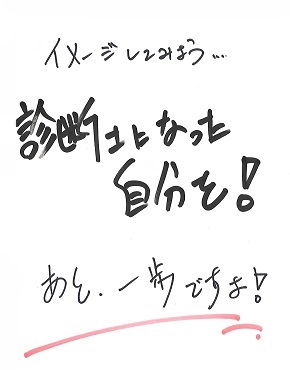 イメージしてみよう…
診断士になった
自分を!
あと、一歩ですよ!